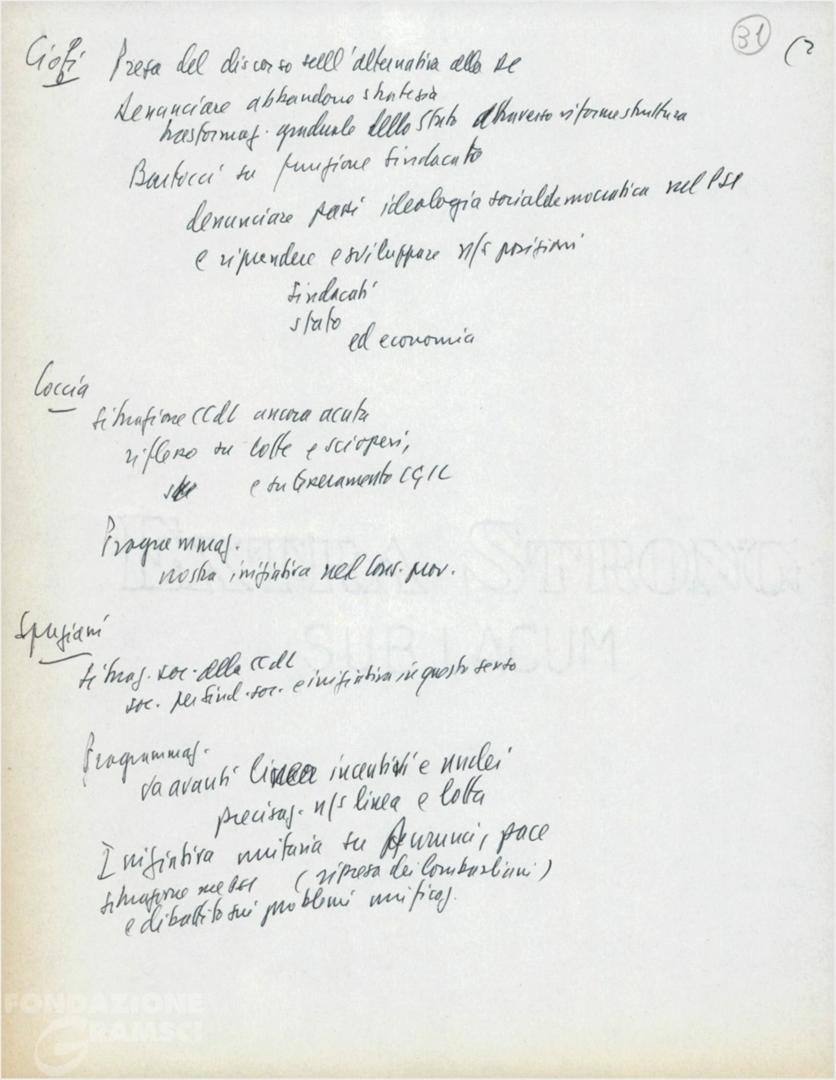 31
(2
Ciofi Presa del discorso sull'alternativa alla DC
Denunciare abbandono strategia
trasformaz. graduale dello Stato attraverso riforme struttura
Bartocci su funzione Sindacato
denunciare passi ideologia socialdemocratica nel PSI
e riprendere e sviluppare n/s posizioni
Sindacati
Stato
ed economia
Coccia
Situazione CCdL ancora acuta
riflesso su lotte e scioperi,
e su tesseramento CGIL
Programmaz.
nostra iniziativa nel Cons. prov.
Speziani
Situaz. soc. della CCdL
soc. per sind. soc. e iniziativa in questo senso
Programmaz.
va avanti linea incentivi e nuclei
precisaz. n/s linea e lotta
Iniziativa unitaria su pace
situazione nel PSI (ripresa dei lombardiani)
e dibattito sui problemi unificaz.
EXTRA STRONG
SUB LACUM
FONDAZIONE
GRAMSCI